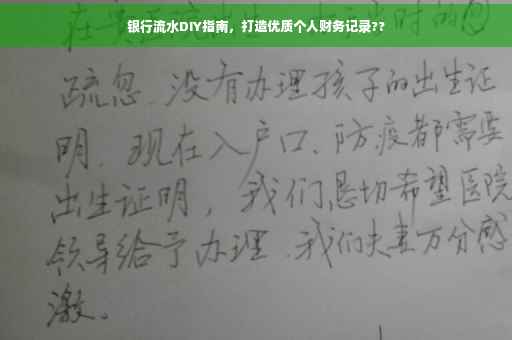 银行流水DIY指南，打造优质个人财务记录??
疏忽.没有办理孩子的出生证
明.现在入户口、防疫都需要
出生证明，我们恳切希望医院
领导给予办理.我们夫妻万分感
激。